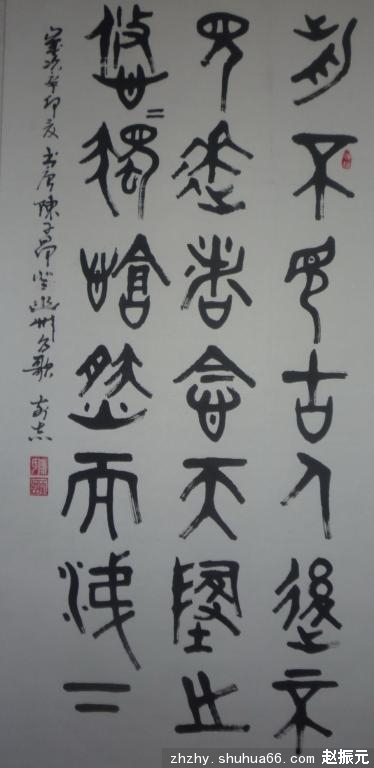 前不見古人後不
見來者念天地之
悠〃獨愴然而涕下
歲次辛卯夏书唐陳子昂登幽州台歌
zhzhy.shuhua66.com 赵振元